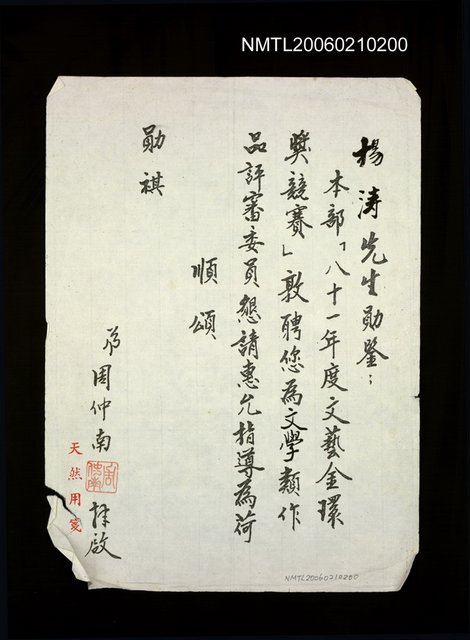 NMTL20060210200
楊濤先生勛鑒：
本部「八十一年度文藝金環
獎競賽」敦聘您為文學類作
品評審委員懇請惠允指導為荷
順頌
勛祺
弟周仲南 拜啟
周仲南
天然用箋
NMTL20060210200